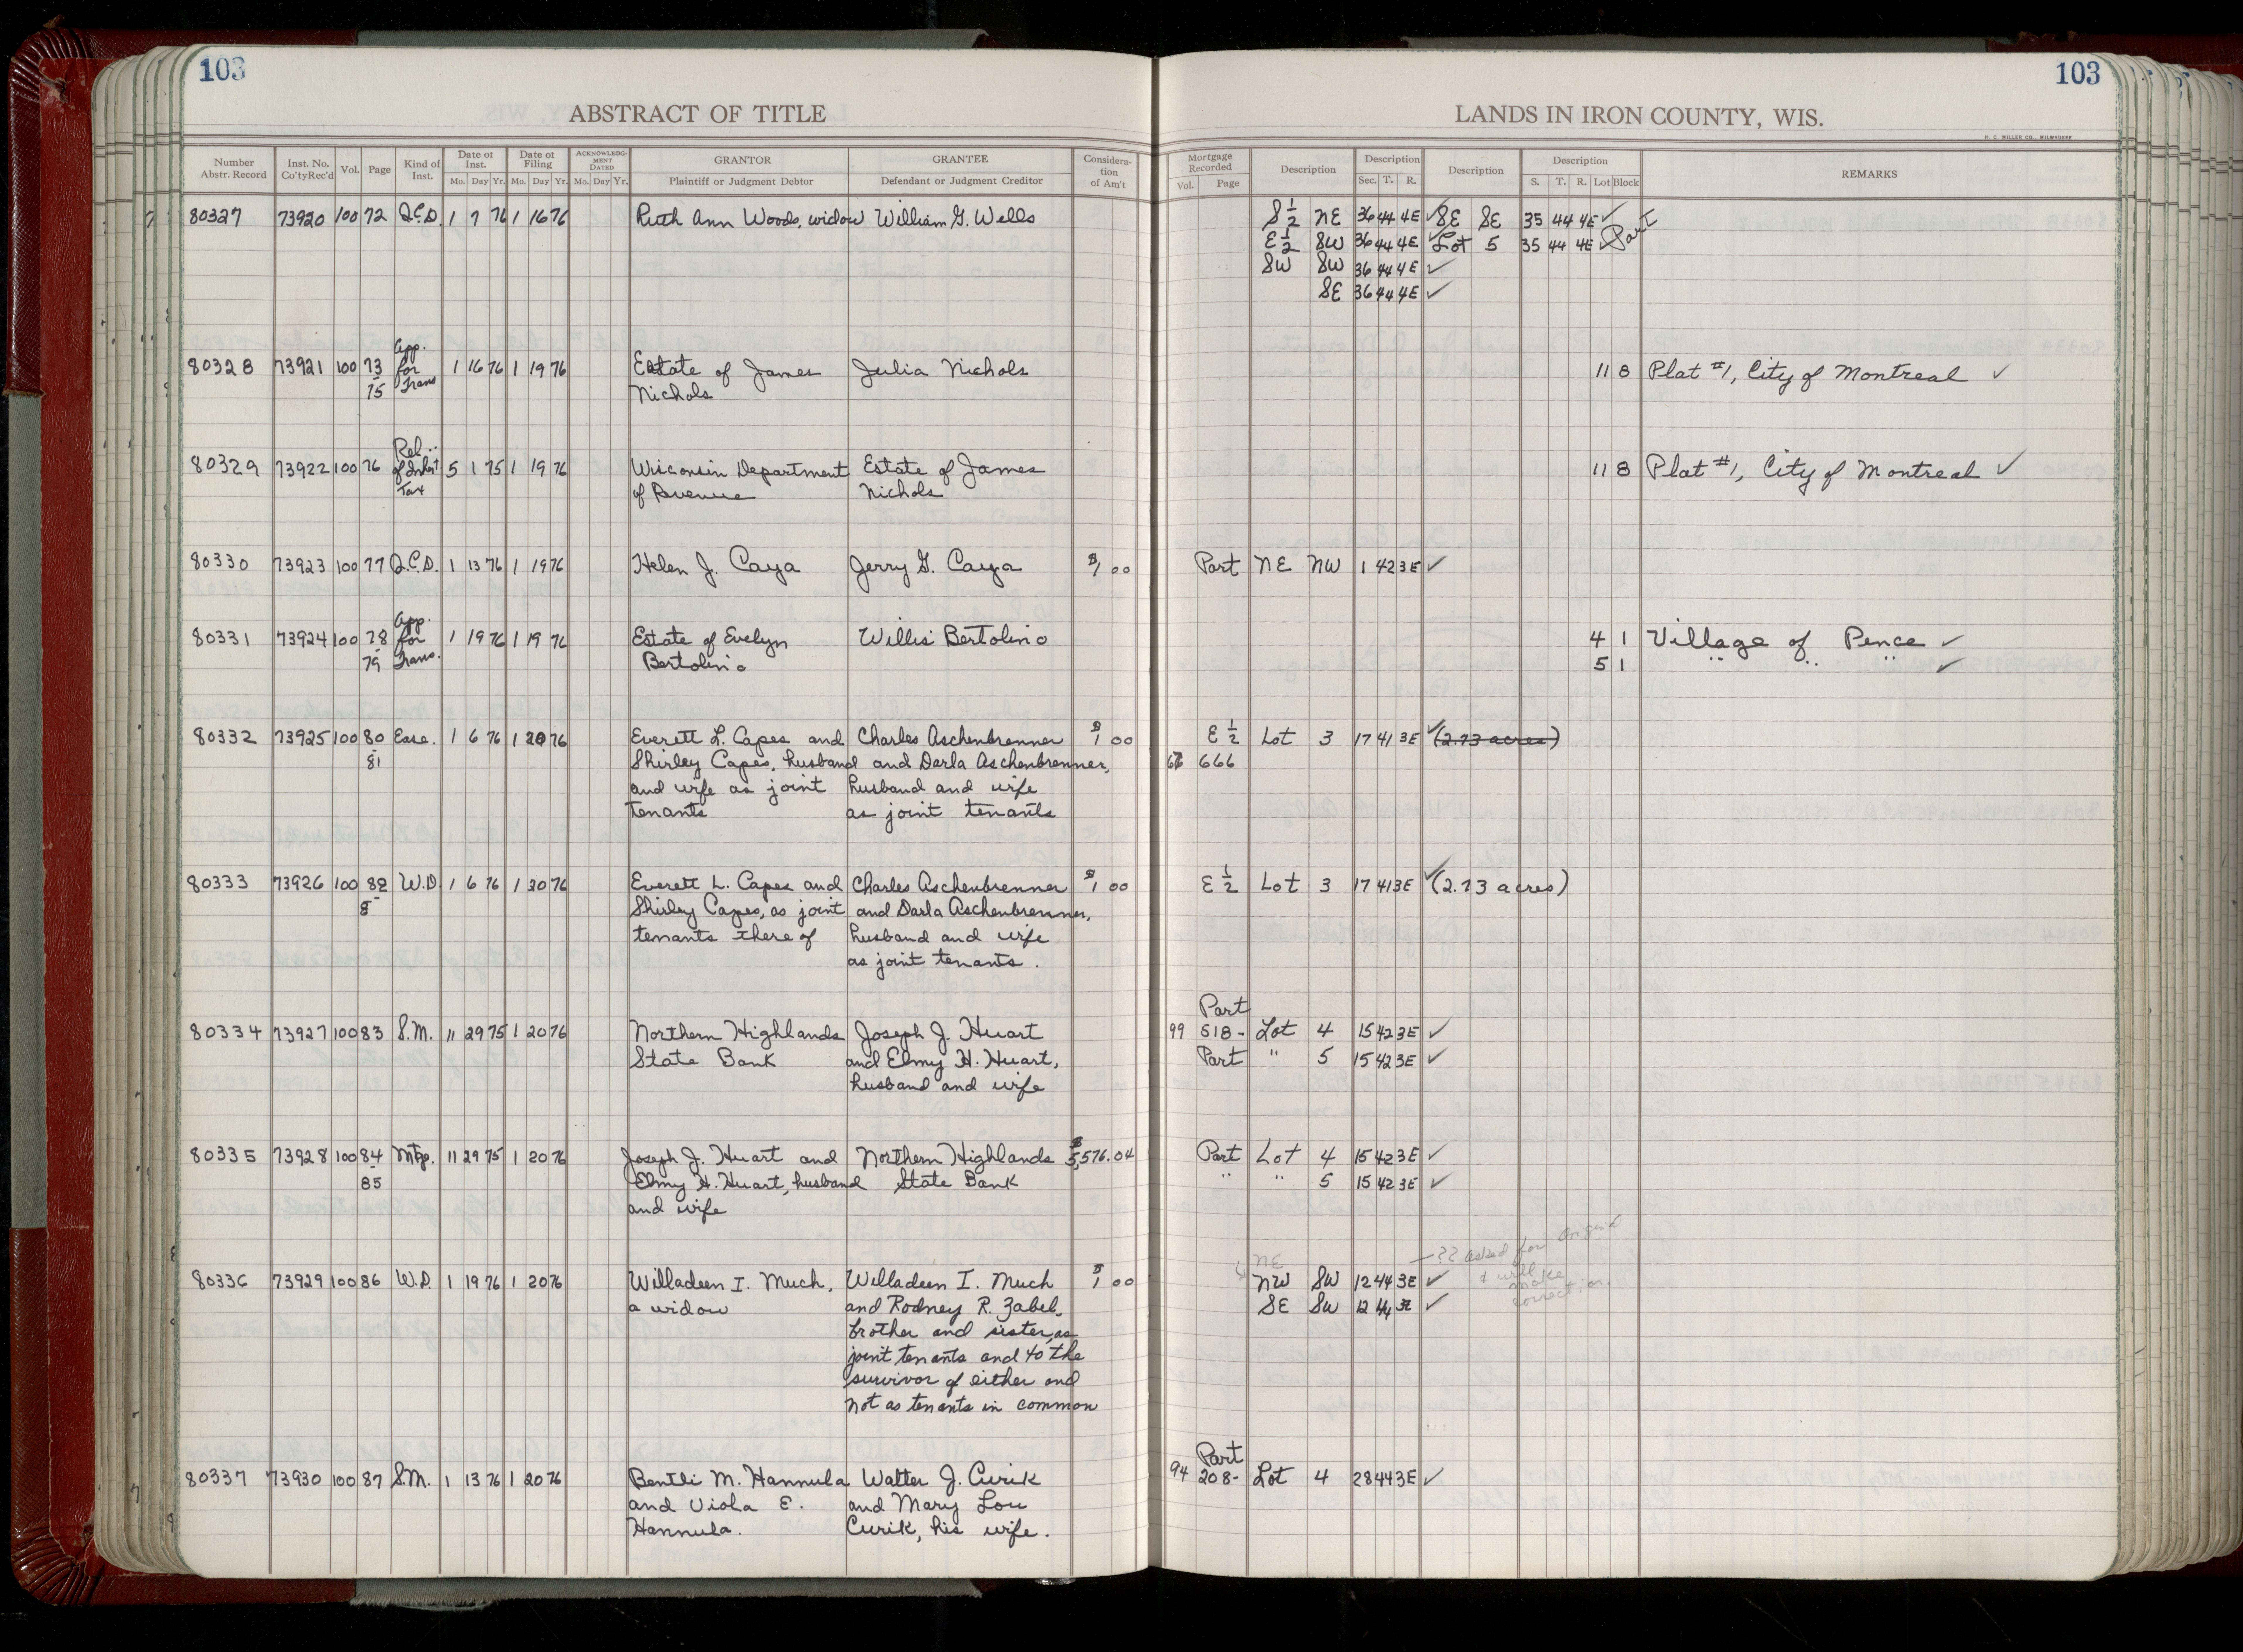 103
103
ABSTRACT OF TITLE
LANDS IN IRON COUNTY, WIS.
H. C. MILLER CO., MILWAUKEE
Number Abstr. Record | Inst. No. Co'ty Rec'd | Vol. | Page | Kind of Inst. | Date of Inst. Mo. Day Yr. | Date of Filing Mo. Day Yr. | ACKNOWLEDGMENT DATED Mo. Day Yr. | GRANTOR Plaintiff or Judgment Debtor | GRANTEE Defendant or Judgment Creditor | Consideration of Am't | Mortgage Recorded Vol. Page | Description | Description Sec. T. R. | Description | Description S. T. R. Lot Block | REMARKS
80327 73920 100 72 Q.C.D. 1 7 76 1 16 76 Ruth Ann Woods, widow William G. Wells S 1/2 NE 36 44 4E ✓ SE SE 35 44 4E ✓
E 1/2 SW 36 44 4E ✓ Lot 5 35 44 4E ✓ Part
SW SW 36 44 4E ✓
SE 36 44 4E ✓
80328 73921 100 73-75 App. for Trans 1 16 76 1 19 76 Estate of James Julia Nichols 11 8 Plat #1, City of Montreal ✓
Nichols
80329 73922 100 76 Rel. of Inherit Tax 5 1 75 1 19 76 Wisconsin Department Estate of James 11 8 Plat #1, City of Montreal ✓
of Revenue Nichols
80330 73923 100 77 Q.C.D. 1 13 76 1 19 76 Helen J. Caya Jerry G. Caya $1 00 Part NE NW 1 42 3E ✓
80331 73924 100 78-79 App. for Trans. 1 19 76 1 19 76 Estate of Evelyn Willis Bertolino 4 1 Village of Pence ✓
Bertolino 5 1 " " " ✓
80332 73925 100 80-81 Ease. 1 6 76 1 20 76 Everett L. Capes and Charles Aschenbrenner $1 00 E 1/2 Lot 3 17 41 3E ✓ (2.73 acres)
Shirley Capes, husband and Darla Aschenbrenner, 666
and wife as joint husband and wife
tenants as joint tenants
80333 73926 100 82 W.D. 1 6 76 1 20 76 Everett L. Capes and Charles Aschenbrenner $1 00 E 1/2 Lot 3 17 41 3E ✓ (2.73 acres)
8 Shirley Capes, as joint and Darla Aschenbrenner,
tenants there of husband and wife
as joint tenants.
Part
80334 73927 100 83 S.M. 11 29 75 1 20 76 Northern Highlands Joseph J. Huart 99 618- Lot 4 15 42 3E ✓
State Bank and Elmy H. Huart, Part " 5 15 42 3E ✓
husband and wife
80335 73928 100 84-85 Mtg. 11 29 75 1 20 76 Joseph J. Huart and Northern Highlands $5,576.04 Part Lot 4 15 42 3E ✓
Elmy H. Huart, husband State Bank " " 5 15 42 3E ✓
and wife
NE —?? asked for origin
80336 73929 100 86 W.D. 1 19 76 1 20 76 Willadeen I. Much, Willadeen I. Much $1 00 NW SW 12 44 3E ✓ & will make
a widow and Rodney R. Zabel, SE SW 12 44 3E ✓ correction.
brother and sister, as
joint tenants and to the
survivor of either and
not as tenants in common
Part
80337 73930 100 87 S.M. 1 13 76 1 20 76 Bentli M. Hannula Walter J. Curik 94 208- Lot 4 28 44 3E ✓
and Viola E. and Mary Lou
Hannula. Curik, his wife.